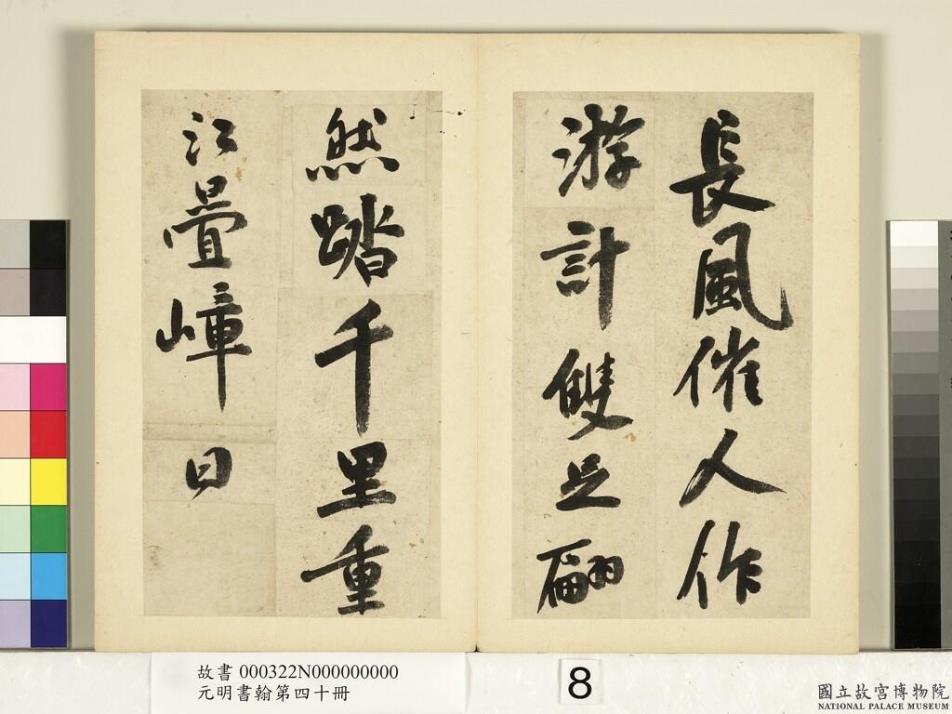 長風催人作
游計雙足翩
然踏千里重
江疊嶂日
故書 000322N000000000
元明書翰第四十冊
8
國立故宮博物院
NATIONAL PALACE MUSEUM